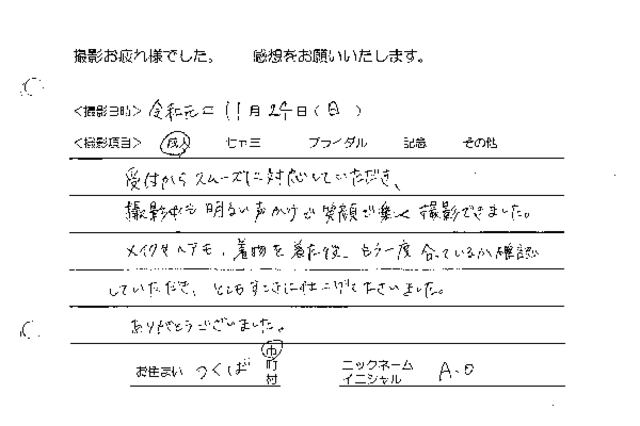 撮影お疲れ様でした。 感想をお願いいたします。
<撮影日時> 令和元年 11月24日(日)
<撮影項目> 成人 七五三 ブライダル 記念 その他
受付からスムーズに対応していただき、
撮影中も明るい声かけで笑顔で楽しく撮影できました。
メイクやヘアも、着物を着た後、もう一度合っているか確認
していただき、とてもすてきに仕上げてくださいました。
ありがとうございました。
お住まい つくば 市町村
ニックネーム イニシャル A.O